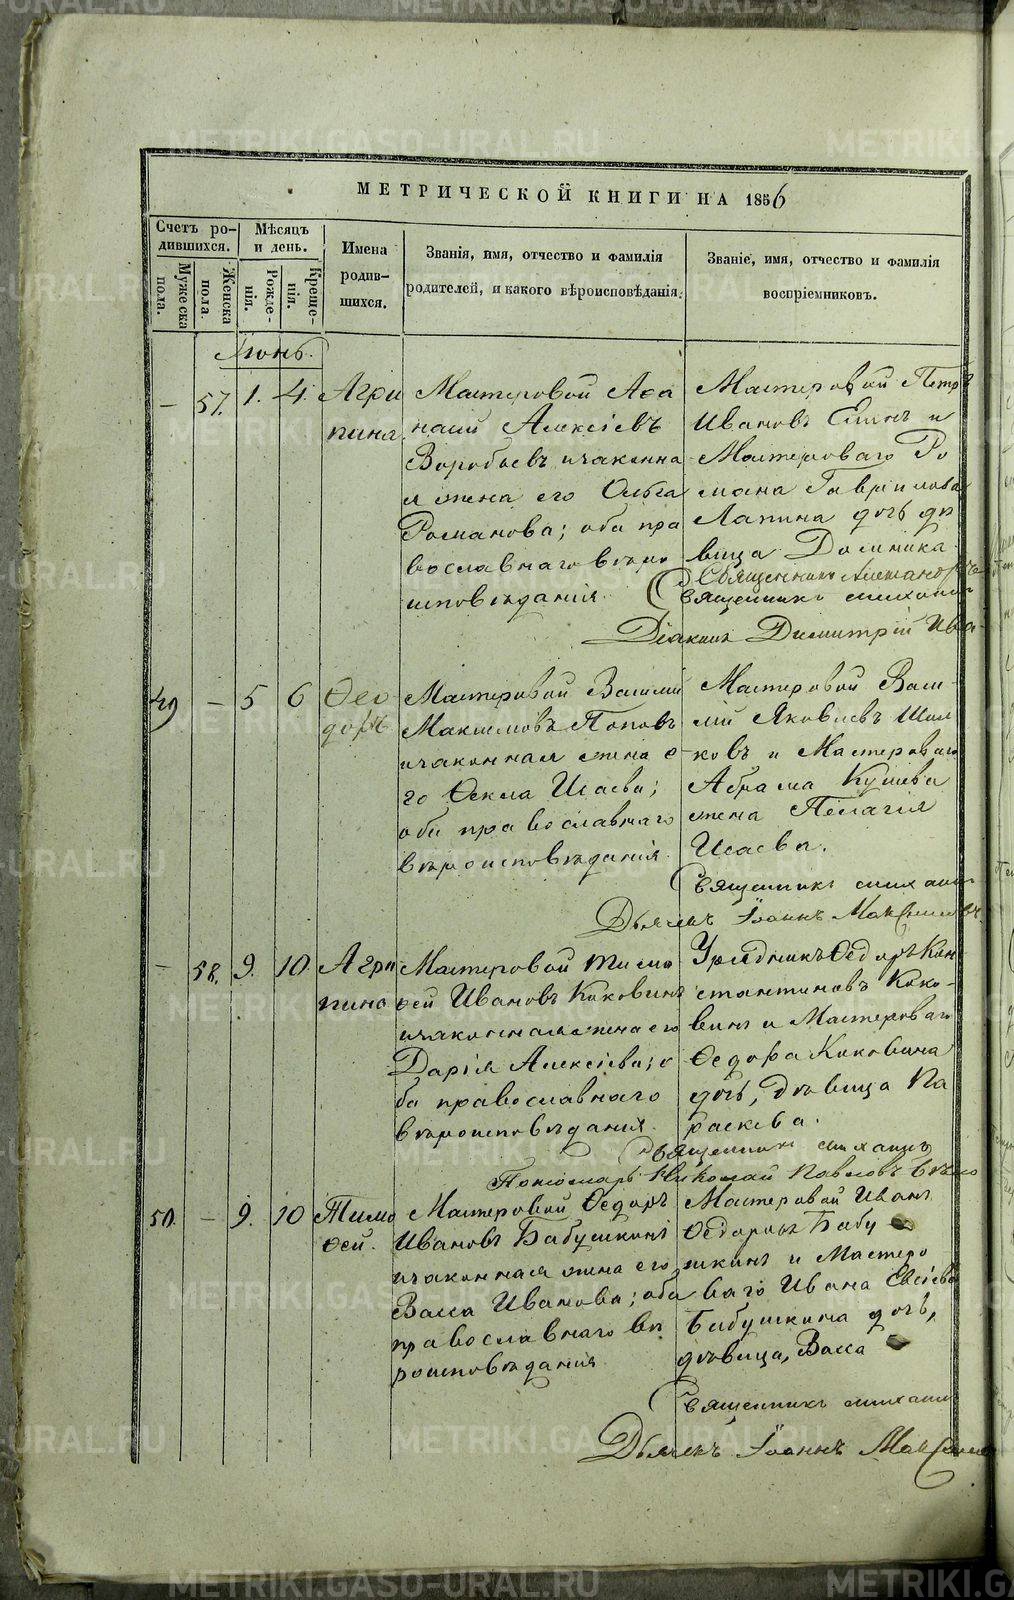 МЕТРИЧЕСКОЙ КНИГИ НА 1856
Счетъ ро-
дившихся.
Мужеска
пола.
Женска
пола.
Мѣсяцъ
и день.
Рожде-
нія.
Креще-
нія.
Имена
родив-
шихся.
Званія, имя, отчество и фамилія
родителей, и какого вѣроисповѣданія.
Званіе, имя, отчество и фамилія
воспріемниковъ.
Іюнь.
— 57. 1. 4. Агри
пина
Мастеровой Аѳа
насій Алексіевъ
Воробьевъ изаконна
я жена его Ольга
Романова; оба пра
вославнаго вѣро
исповѣданія.
Мастеровой Петръ
Ивановъ и
Мастероваго Ро
мана Гаврилова
Лапина дочь дѣ
вица Домника
Священникъ Александръ
Священникъ Михаилъ
Діаконъ Димитрій
49 — 5 6 Ѳео
доръ
Мастеровой Василій
Максимовъ Поповъ
изаконная жена е
го Ѳекла Исаева;
оба православнаго
вѣроисповѣданія.
Мастеровой Васи-
лій Яковлевъ
ковъ и Мастероваго
Абрама
жена Пелагія
Исаева.
Священникъ Михаилъ
Дьячекъ Іоаннъ Максимовъ
— 58. 9. 10. Агри
пина
Мастеровой Тимо
ѳей Ивановъ Коковинъ
изаконная жена его
Дарія Алексіева; о
ба православнаго
вѣроисповѣданія.
Урядникъ Ѳедоръ Кон
стантиновъ Коко-
винъ и Мастероваго
Ѳедора Коковина
дочь, дѣвица Па
раскева.
Священникъ Михаилъ
Пономарь Николай Павловъ
50. — 9. 10 Тимо
ѳей.
Мастеровой Ѳедоръ
Ивановъ Бабушкинъ
изаконная жена его
Васса Иванова; оба
православнаго вѣ
роисповѣданія
Мастеровой Иванъ
Ѳедоровъ Бабу
шкинъ и Мастеро
ваго Ивана
Бабушкина дочь,
дѣвица, Васса
Священникъ Михаилъ
Дьячекъ Іоаннъ
METRIKI.GASO-URAL.RU